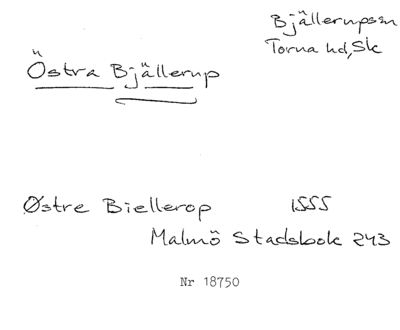 Bjällerupssn
Torna hd, Sk
Östra Bjällerup
Østre Biellerop 1555
Malmö Stadsbok 243
Nr 18750